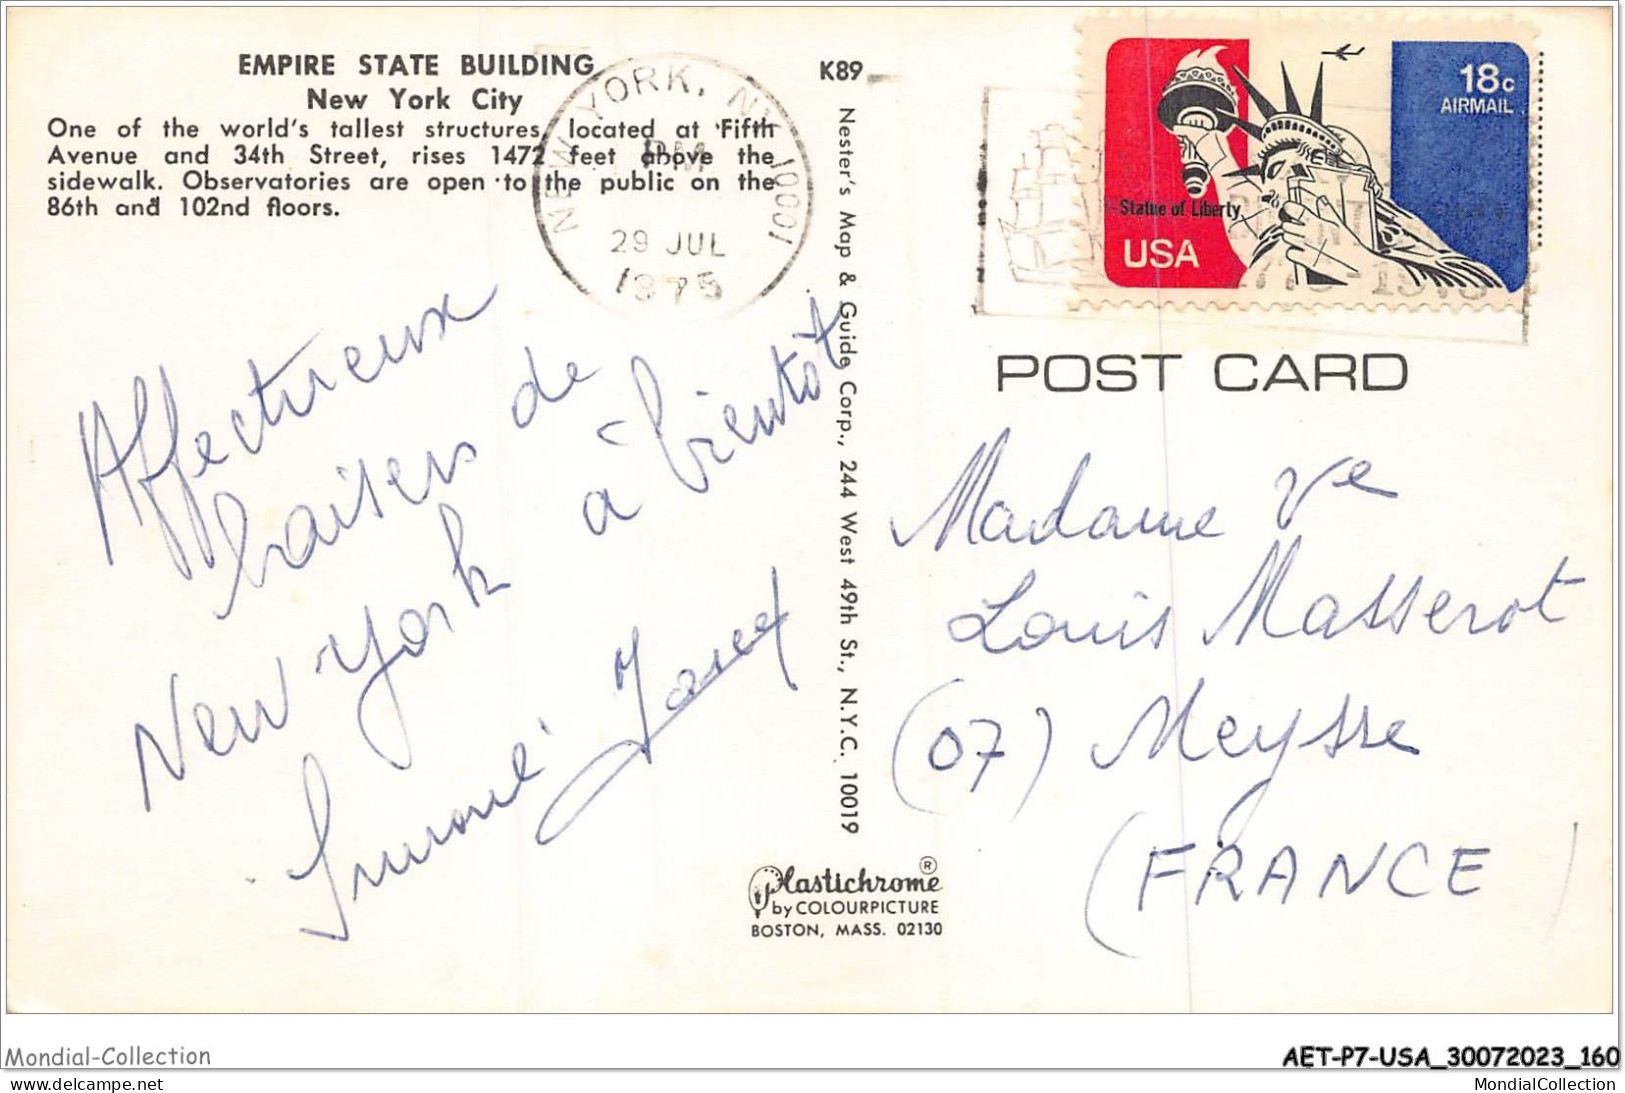 EMPIRE STATE BUILDING
New York City
One of the world's tallest structures, located at Fifth
Avenue and 34th Street, rises 1472 feet above the
sidewalk. Observatories are open to the public on the
86th and 102nd floors.
K89
NEW YORK, NY 10001
PM
29 JUL
1975
18c
AIRMAIL
Statue of Liberty
USA
Nester's Map & Guide Corp., 244 West 49th St., N.Y.C. 10019
POST CARD
Affectueux
baisers de
New York à bientôt
Madame Vve
Louis Masserot
(07) Meysse
(FRANCE)
Plastichrome®
by COLOURPICTURE
BOSTON, MASS. 02130
Mondial-Collection
AET-P7-USA_30072023_160
www.delcampe.net
MondialCollection